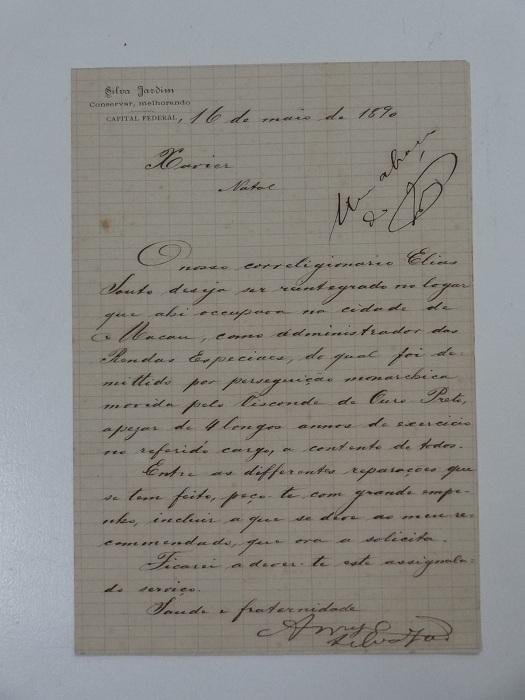 Silva Jardim
Conservar, melhorando
CAPITAL FEDERAL, 16 de maio de 1890
Xavier
Natal
Um abraço
do
O nosso correligionario Elias
Souto deseja ser reintegrado no logar
que ahi occupava na cidade de
Macau, como administrador das
Rendas Especiaes, do qual foi de-
mittido por perseguição monarchica
movida pelo Visconde de Ouro Preto,
apezar de 4 longos annos de exercicio
no referido cargo, a contento de todos.
Entre as differentes reparações que
se tem feito, peço-te com grande empe-
nho, incluir a que se deve ao meu re-
commendado, que ora a solicita.
Ficarei a dever-te este assignala-
do serviço.
Saude e fraternidade
Silva Jard